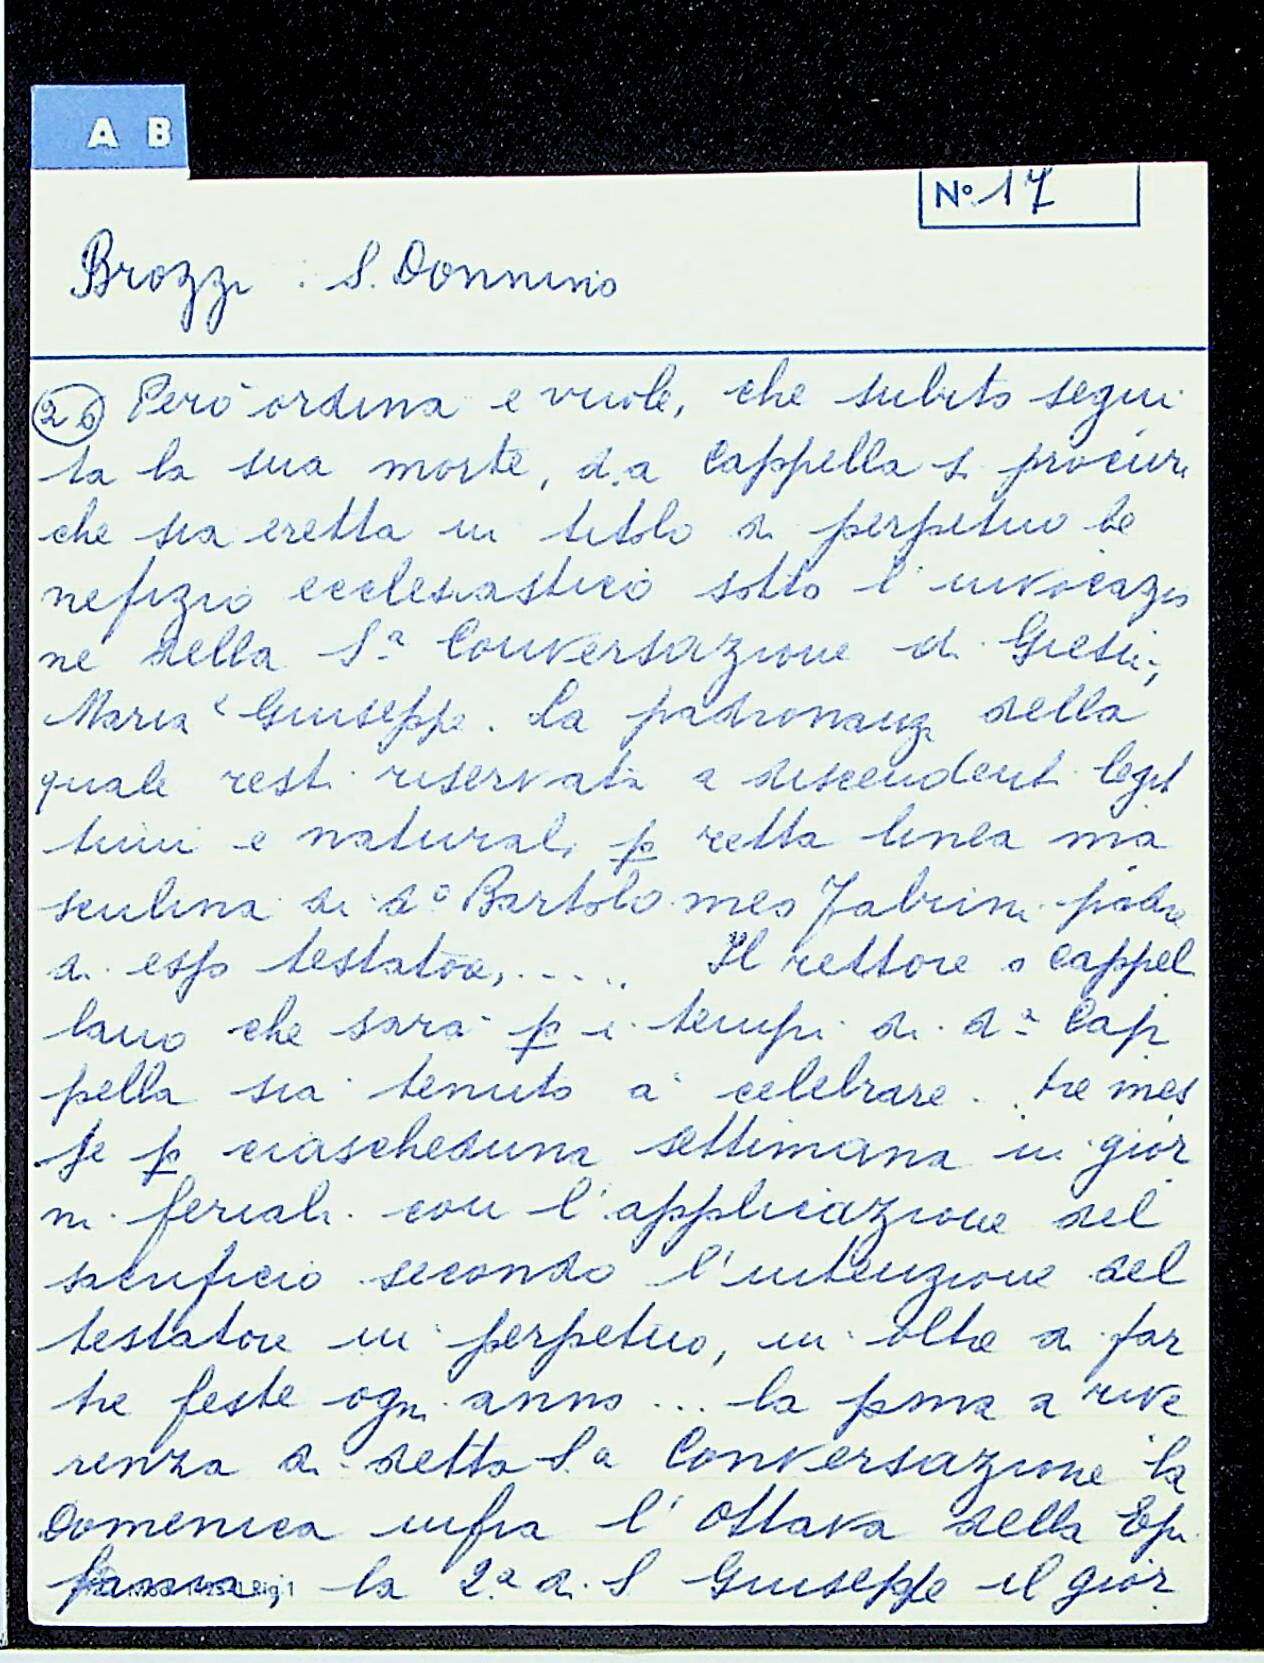 A B
No. 17
Brozzi : S. Donnino
26 Però ordina e vuole, che subito segui
ta la sua morte, d.a Cappella si procuri
che sia eretta in titolo di perpetuo be
nefizio ecclesiastico sotto l'invocazio
ne della S.a Conversazione di Giesù,
Maria e Giuseppe. La padronanza della
quale resti riservata a discendenti legit
timi e naturali p retta linea ma
sculina di d.o Bartolomeo Fabrini padre
di esso testatore, .... Il rettore o cappel
lano che sarà p i tempi di d.a Cap
pella sia tenuto a celebrare .. tre mes
se p ciascheduna settimana in gior
ni feriali con l'applicazione del
sacrificio secondo l'intenzione del
testatore in perpetuo, in oltre a far
tre feste ogni anno ... la pma a rive
renza di detta S.a Conversazione la
Domenica infra l'Ottava della Epi
fania, la 2.a di S Giuseppe il gior
Rig.1